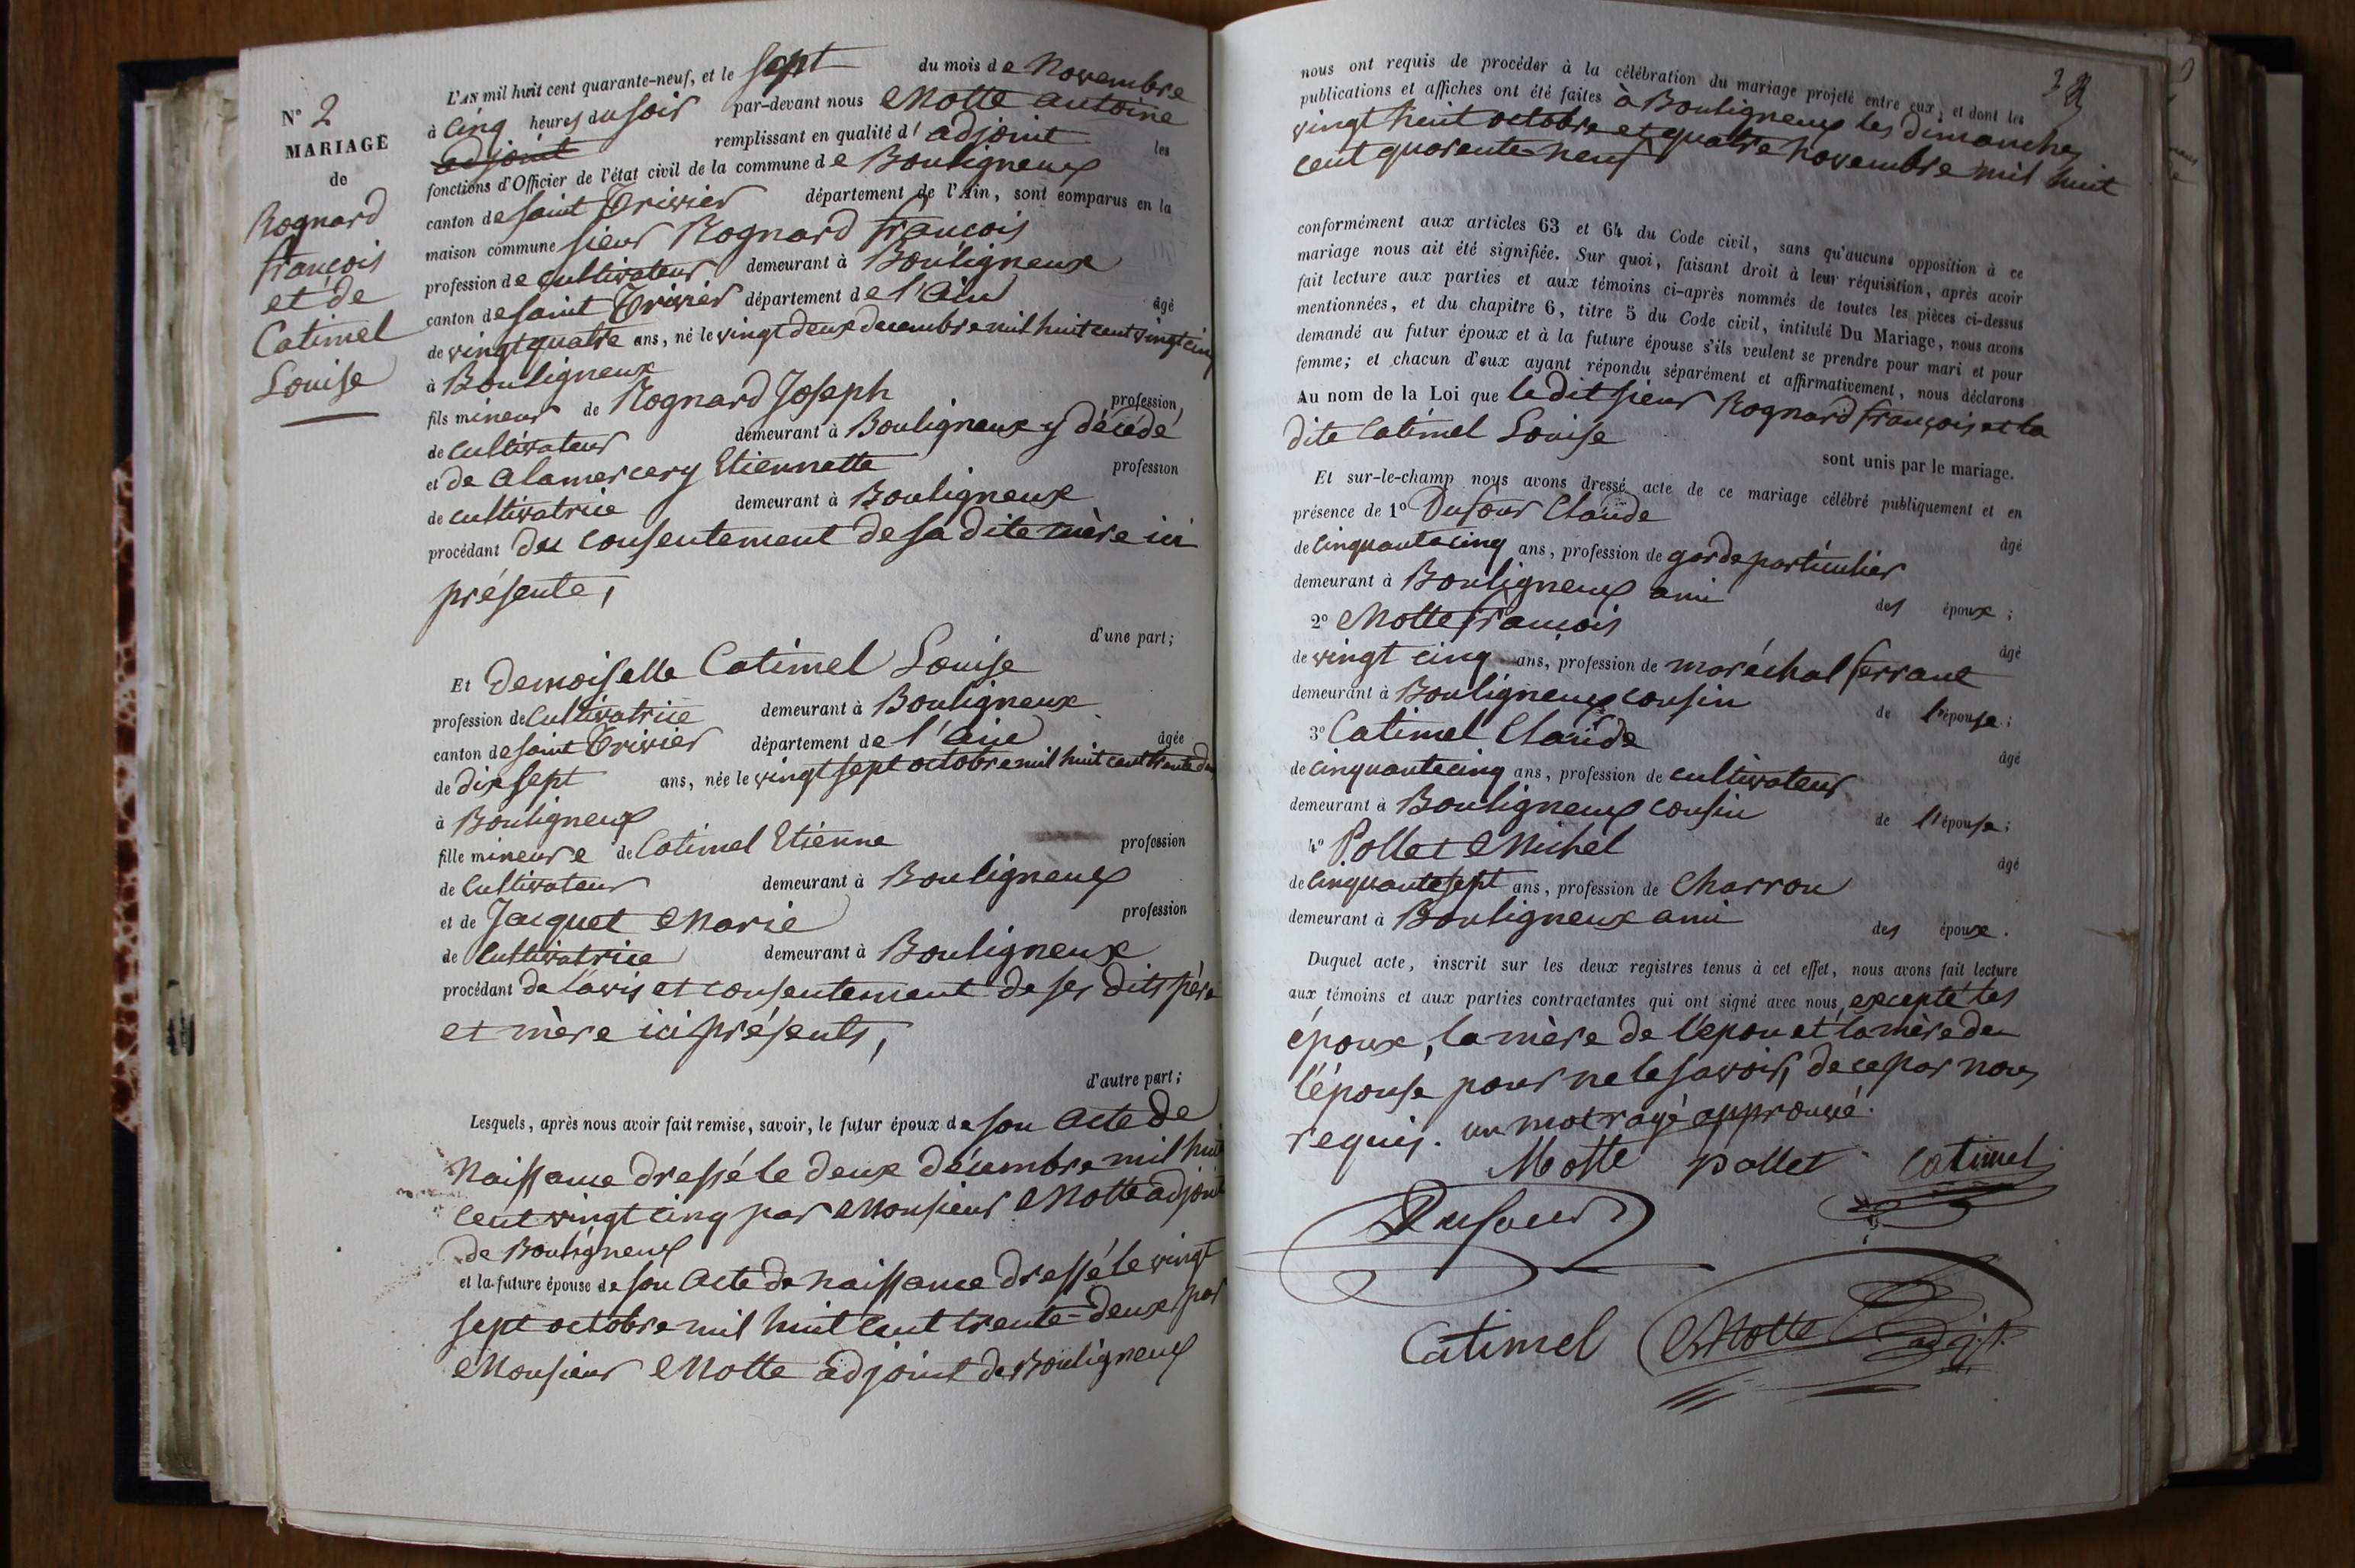 N° 2
MARIAGE
de
Rognard
françois
et de
Catimel
Louise
L'AN mil huit cent quarante-neuf, et le sept du mois de Novembre
à cinq heures du soir par-devant nous Motte antoine
adjoint remplissant en qualité d'adjoint les
fonctions d'Officier de l'état civil de la commune de Bouligneux
canton de saint Trivier département de l'Ain, sont comparus en la
maison commune sieur Rognard françois
profession de cultivateur demeurant à Bouligneux
canton de saint Trivier département de l'ain âgé
de vingt quatre ans, né le vingt deux decembre mil huit cent vingt cinq
à Bouligneux
fils mineur de Rognard Joseph profession
de cultivateur demeurant à Bouligneux y décédé
et de Alamercery Etiennette profession
de cultivatrice demeurant à Bouligneux
procédant du consentement de sa dite mère ici
présente,
d'une part;
Et Demoiselle Catimel Louise
profession de Cultivatrice demeurant à Bouligneux
canton de saint Trivier département de l'ain âgée
de dix sept ans, née le vingt sept octobre mil huit cent trente deux
à Bouligneux
fille mineure de Catimel Etienne profession
de Cultivateur demeurant à Bouligneux
et de Jacquet Marie profession
de Cultivatrice demeurant à Bouligneux
procédant de l'avis et consentement de ses dits père
et mère ici présents,
d'autre part;
Lesquels, après nous avoir fait remise, savoir, le futur époux de son acte de
Naissance dressé le deux décembre mil huit
cent vingt cinq par Monsieur Motte adjoint
de Bouligneux
et la future épouse de son acte de naissance dressé le vingt
sept octobre mil huit cent trente-deux par
Monsieur Motte adjoint de Bouligneux
nous ont requis de procéder à la célébration du mariage projeté entre eux, et dont les
publications et affiches ont été faites à Bouligneux les dimanches
vingt huit octobre et quatre novembre mil huit
cent quarente-neuf
conformément aux articles 63 et 64 du Code civil, sans qu'aucune opposition à ce
mariage nous ait été signifiée. Sur quoi, faisant droit à leur réquisition, après avoir
fait lecture aux parties et aux témoins ci-après nommés de toutes les pièces ci-dessus
mentionnées, et du chapitre 6, titre 5 du Code civil, intitulé Du Mariage, nous avons
demandé au futur époux et à la future épouse s'ils veulent se prendre pour mari et pour
femme; et chacun d'eux ayant répondu séparément et affirmativement, nous déclarons
Au nom de la Loi que le dit sieur Rognard françois et la
dite Catimel Louise
sont unis par le mariage.
Et sur-le-champ nous avons dressé acte de ce mariage célébré publiquement et en
présence de 1° Dufour Claude
âgé
de cinquante cinq ans, profession de garde particulier
demeurant à Bouligneux ami des époux;
2° Motte françois
âgé
de vingt cinq ans, profession de maréchal ferrant
demeurant à Bouligneux cousin de l'épouse;
3° Catimel Claude
âgé
de cinquante cinq ans, profession de cultivateur
demeurant à Bouligneux cousin de l'épouse;
4° Pollet Michel
âgé
de cinquante sept ans, profession de Charron
demeurant à Bouligneux ami des époux.
Duquel acte, inscrit sur les deux registres tenus à cet effet, nous avons fait lecture
aux témoins et aux parties contractantes qui ont signé avec nous, excepté les
époux, la mère de l'epou et la mère de
l'épouse pour ne le savoir, de ce par nous
requis. un mot rayé approuvé.
Motte pollet Catimel
Dufour
Catimel Motte adjt